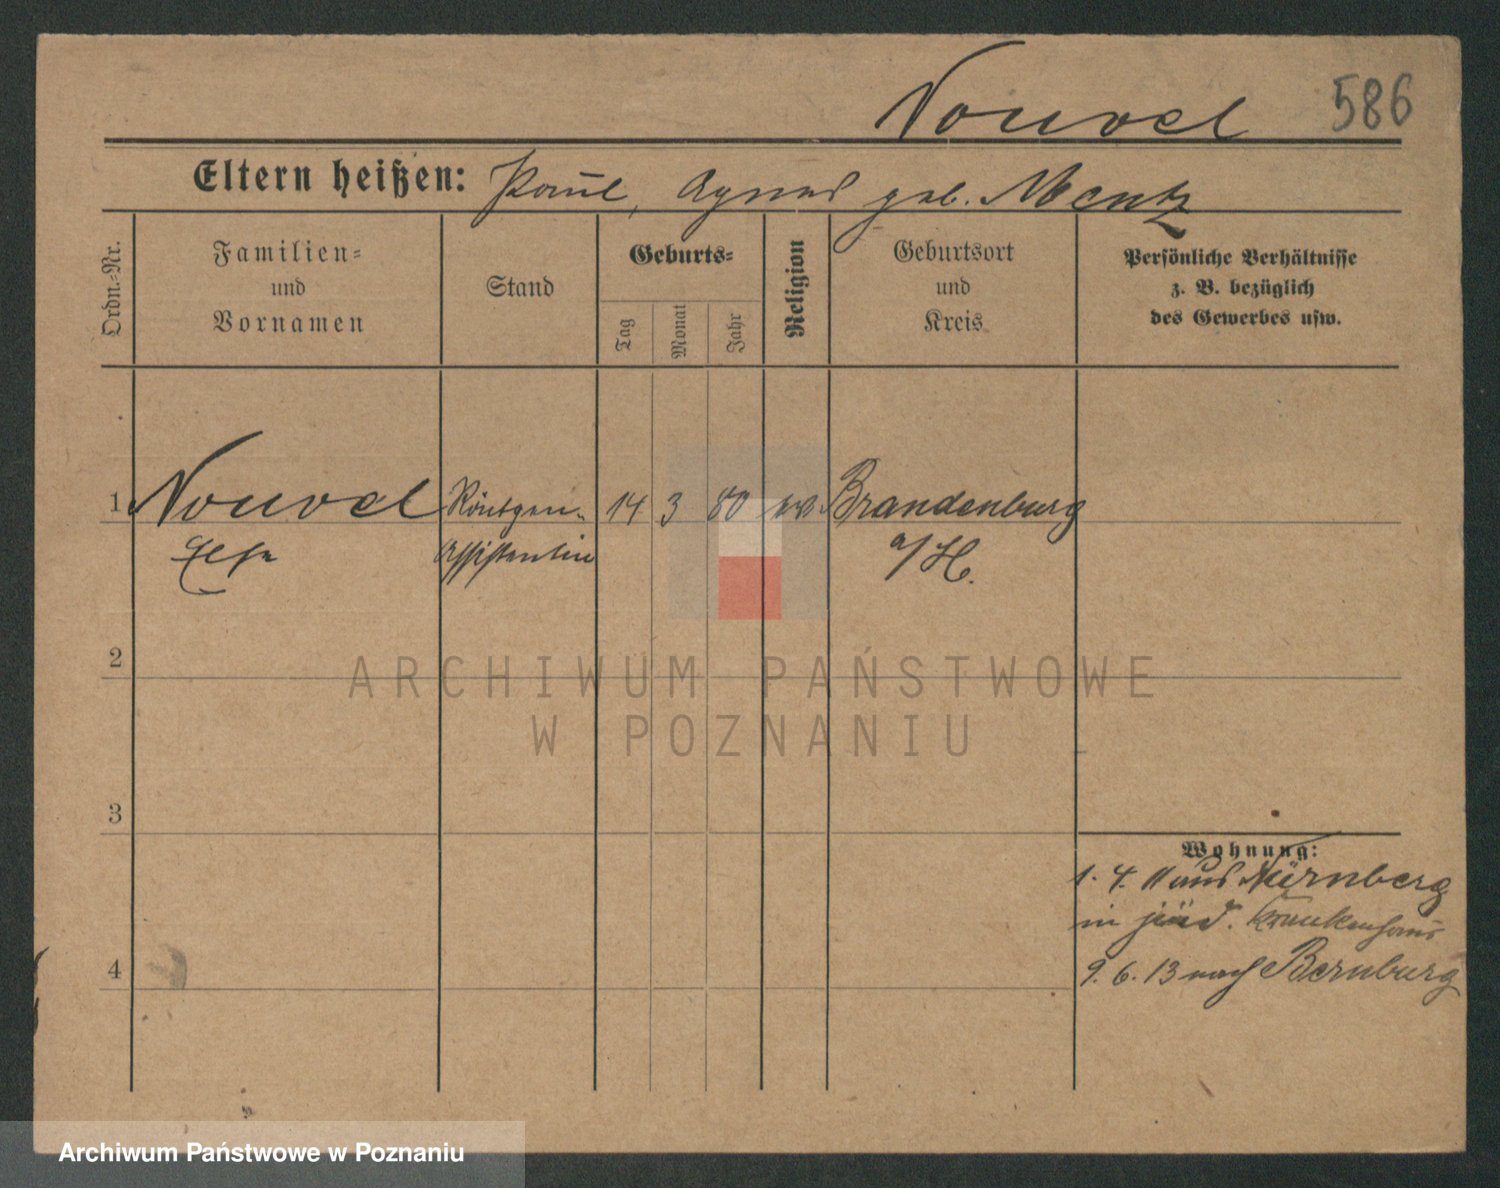 Nouvel 586
Eltern heißen: Paul, Agnes geb. Mentz
Ordn.-Nr.
Familien-
und
Vornamen
Stand
Geburts-
Tag
Monat
Jahr
Religion
Geburtsort
und
Kreis
Persönliche Verhältnisse
z. B. bezüglich
des Gewerbes usw.
1 Nouvel Röntgen- 14 3 80 ev. Brandenburg
Else Assistentin a/H.
2
3
4
Wohnung:
1. 4. 11 aus Nürnberg
in jüd. Krankenhaus
9. 6. 13 nach Bernburg
ARCHIWUM PAŃSTWOWE
W POZNANIU
Archiwum Państwowe w Poznaniu